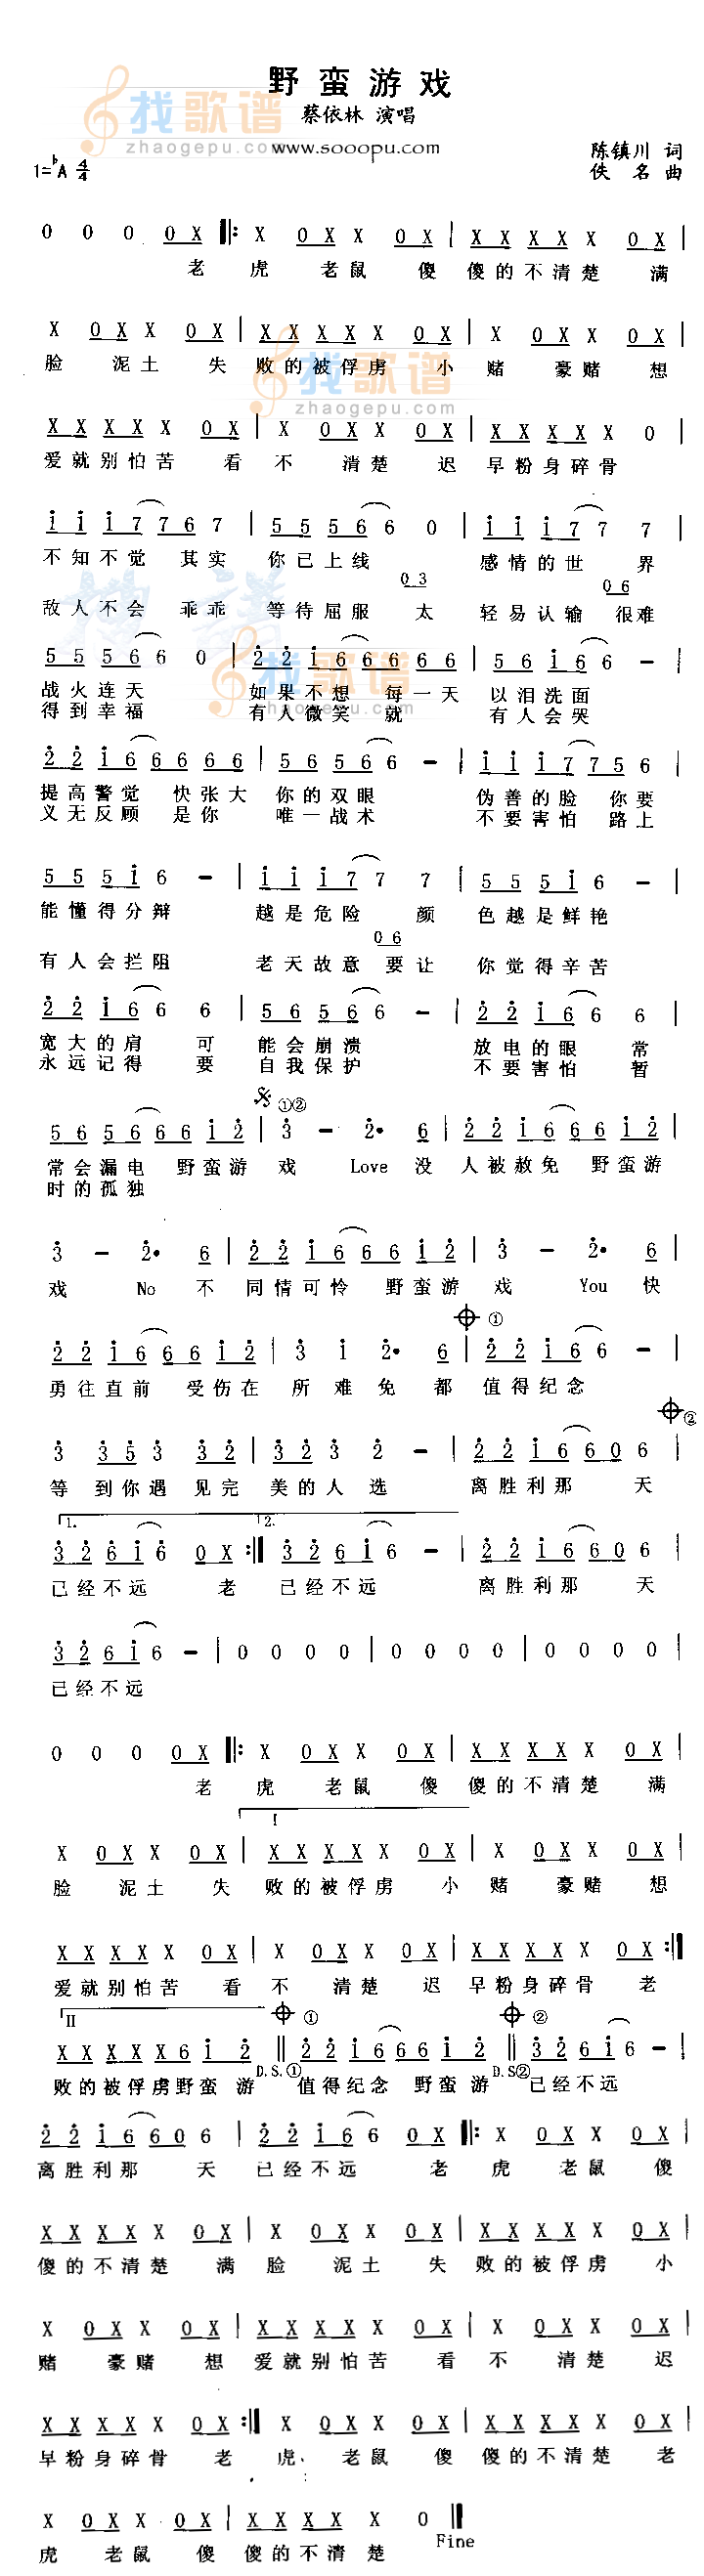 野蛮游戏
找歌谱
蔡依林 演唱
zhaogepu.com
www.sooopu.com
陈镇川 词
1=♭A 4/4
佚名 曲
0 0 0 0 X ‖: X 0 X X 0 X | X X X X X 0 X |
老 虎 老鼠 傻 傻的不清楚 满
X 0 X X 0 X | X X X X X 0 X | X 0 X X 0 X |
脸 泥土 失 败的被俘虏 小 赌 豪赌 想
找歌谱
zhaogepu.com
X X X X X 0 X | X 0 X X 0 X | X X X X X 0 |
爱就别怕苦 看 不 清楚 迟 早粉身碎骨
i i i 7 7 6 7 | 5 5 5 6 6 0 | i i i 7 7 7 |
不知不觉 其实 你已上线 感情的世 界
0 3 0 6
敌人不会 乖乖 等待屈服 太 轻易认输 很难
5 5 5 6 6 0 | 2 2 i 6 6 6 6 6 | 5 6 i 6 6 - |
战火连天 如果不想 每一天 以泪洗面
得到幸福 有人微笑 就 有人会哭
找歌谱
zhaogepu.com
2 2 i 6 6 6 6 6 | 5 6 5 6 6 - | i i i 7 7 5 6 |
提高警觉 快张大 你的双眼 伪善的脸 你要
义无反顾 是你 唯一战术 不要害怕 路上
5 5 5 i 6 - | i i i 7 7 7 | 5 5 5 i 6 - |
能懂得分辩 越是危险 颜 色越是鲜艳
0 6
有人会拦阻 老天故意 要让 你觉得辛苦
2 2 i 6 6 6 6 | 5 6 5 6 6 - | 2 2 i 6 6 6 |
宽大的肩 可 能会崩溃 放电的眼 常
永远记得 要 自我保护 不要害怕 暂
①②
5 6 5 6 6 6 i 2 | 3 - 2· 6 | 2 2 i 6 6 6 i 2 |
常会漏电 野蛮游 戏 Love 没 人被赦免 野蛮游
时的孤独
3 - 2· 6 | 2 2 i 6 6 6 i 2 | 3 - 2· 6 |
戏 No 不 同情可怜 野蛮游 戏 You 快
①
2 2 i 6 6 6 i 2 | 3 i 2· 6 | 2 2 i 6 6 - |
勇往直前 受伤在 所难免 都 值得纪念
②
3 3 5 3 3 2 | 3 2 3 2 - | 2 2 i 6 6 0 6 |
等 到你遇 见完 美的人选 离胜利那 天
1. 2.
3 2 6 i 6 0 X :‖ 3 2 6 i 6 - | 2 2 i 6 6 0 6 |
已经不远 老 已经不远 离胜利那 天
3 2 6 i 6 - | 0 0 0 0 | 0 0 0 0 | 0 0 0 0 |
已经不远
0 0 0 0 X ‖: X 0 X X 0 X | X X X X X 0 X |
老 虎 老鼠 傻 傻的不清楚 满
I
X 0 X X 0 X | X X X X X 0 X | X 0 X X 0 X |
脸 泥土 失 败的被俘虏 小 赌 豪赌 想
X X X X X 0 X | X 0 X X 0 X | X X X X X 0 X :‖
爱就别怕苦 看 不 清楚 迟 早粉身碎骨 老
II ① ②
X X X X X 6 i 2 ‖ 2 2 i 6 6 6 i 2 ‖ 3 2 6 i 6 - |
D.S.① D.S②
败的被俘虏野蛮 游 值得纪念 野蛮 游 已经不远
2 2 i 6 6 0 6 | 2 2 i 6 6 0 X ‖: X 0 X X 0 X |
离胜利那 天 已经不远 老 虎 老鼠 傻
X X X X X 0 X | X 0 X X 0 X | X X X X X 0 X |
傻的不清楚 满 脸 泥土 失 败的被俘虏 小
X 0 X X 0 X | X X X X X 0 X | X 0 X X 0 X |
赌 豪赌 想 爱就别怕苦 看 不 清楚 迟
X X X X X 0 X :‖ X 0 X X 0 X | X X X X X 0 X |
早粉身碎骨 老 虎 老鼠 傻 傻的不清楚 老
X 0 X X 0 X | X X X X X 0 ‖
Fine
虎 老鼠 傻 傻的不清楚